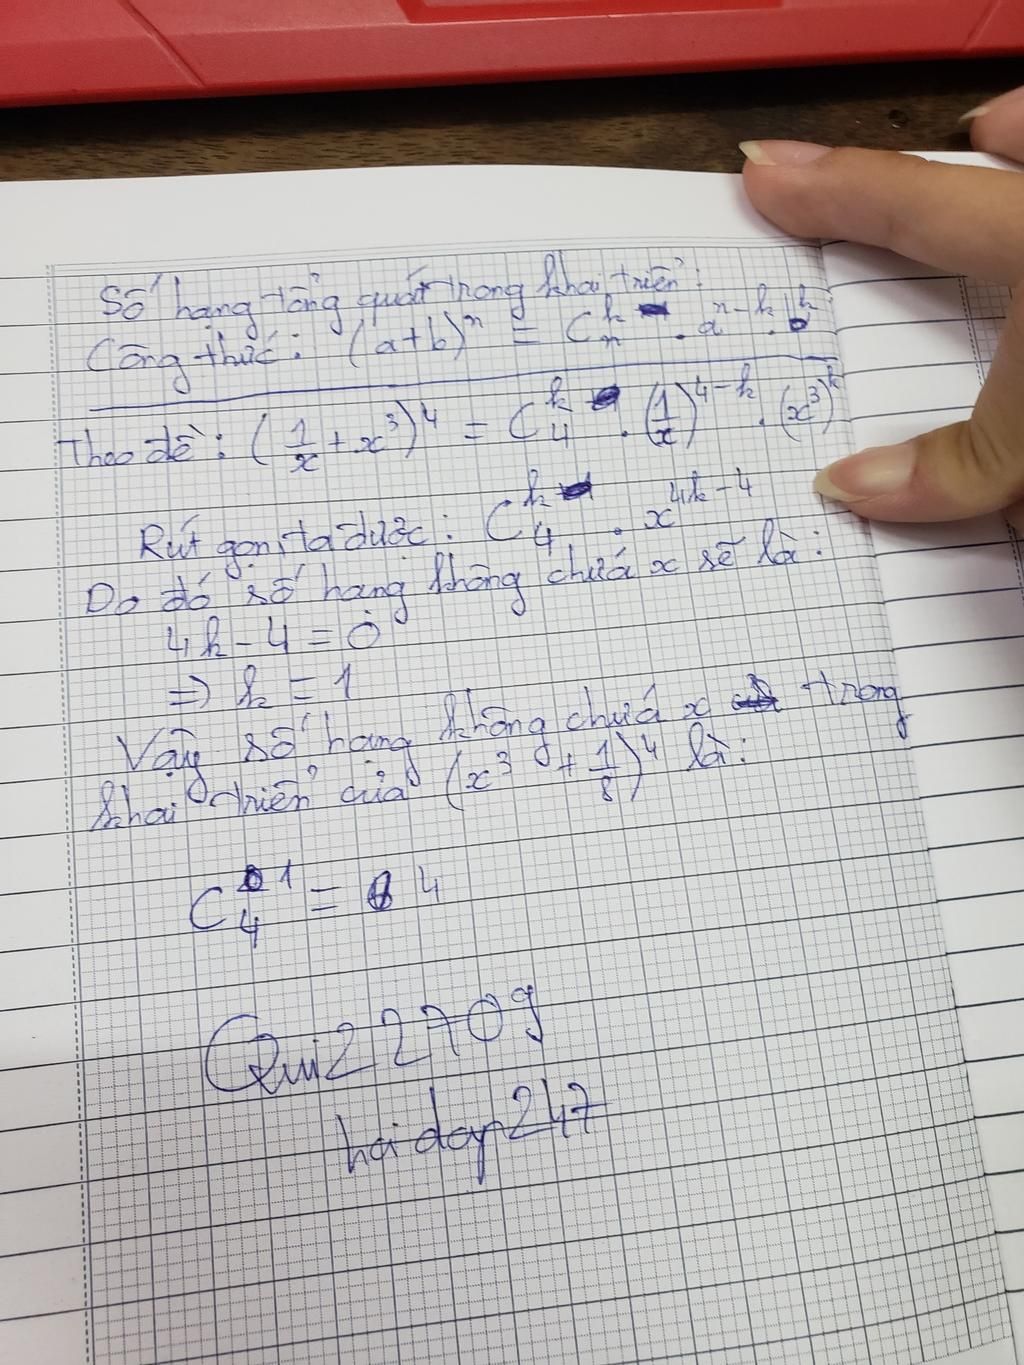 Số hạng tổng quát trong khai triển:
Công thức: (a+b)^n = C_n^k . a^{n-k} . b^k
Theo đề: (1/x + x^3)^4 = C_4^k . (1/x)^{4-k} . (x^3)^k
Rút gọn, ta được: C_4^k . x^{4k-4}
Do đó số hạng không chứa x sẽ là:
4k-4 = 0
=> k = 1
Vậy số hạng không chứa x trong
khai triển của (x^3 + 1/8)^4 là:
C_4^1 = 4
Quiz270g
hoidap247